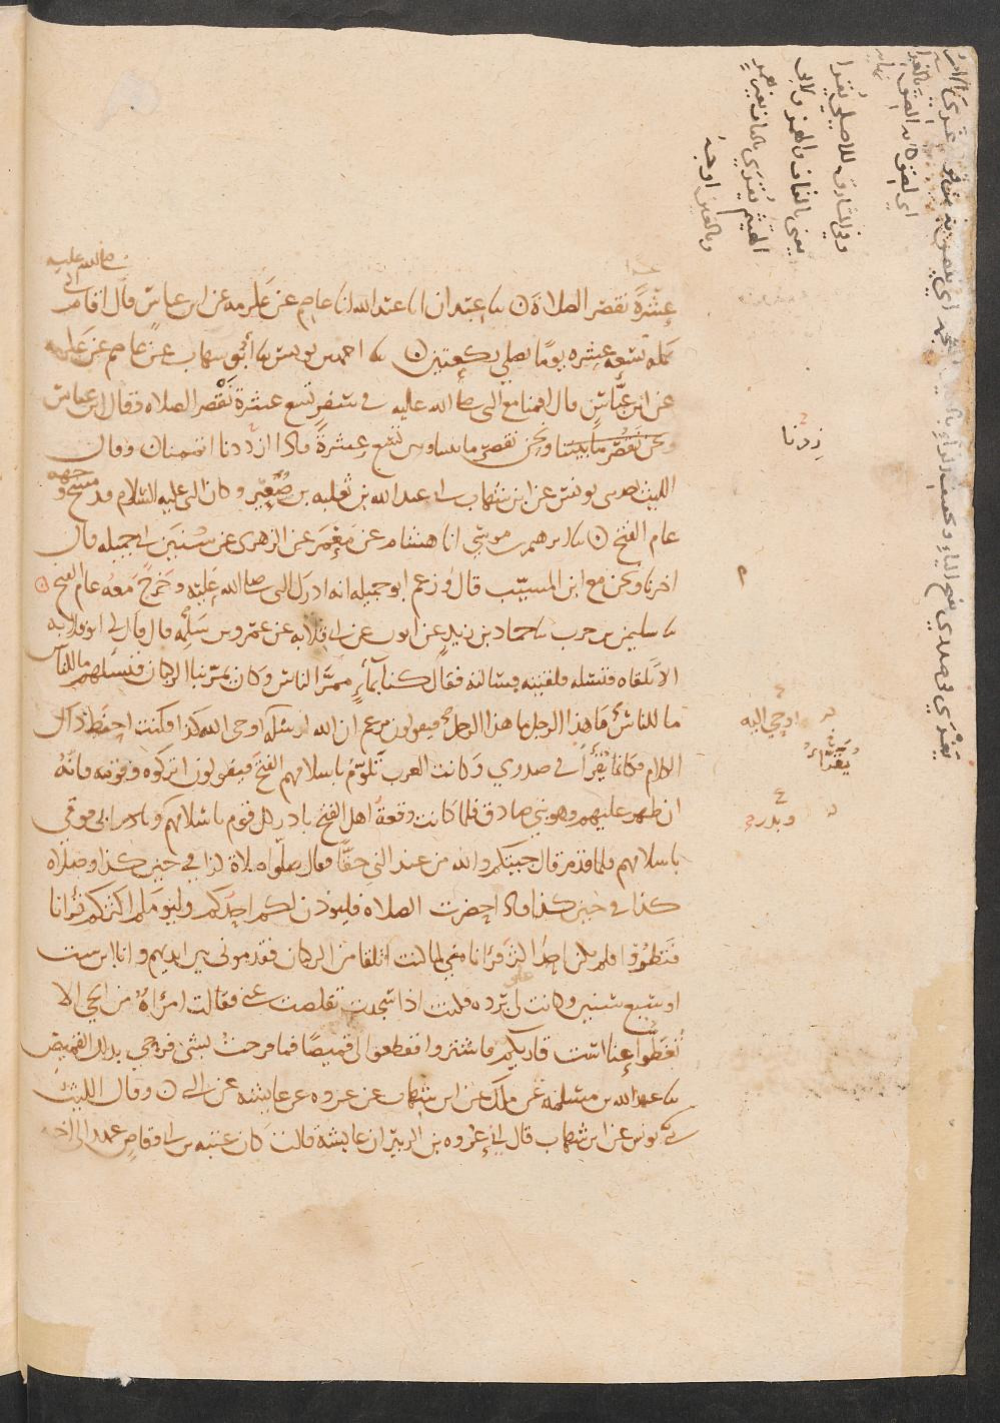 صلى الله عليه
عشرة نقصر الصلاة ن سا عبدان انا عبد الله انا عاصم عن عكرمه عن ابن عباس قال اقام النبي
بمكه تسعه عشره يوما يصلي ركعتين ن سا احمد بن يونس سا ابو شهاب عن عاصم عن عكرمه
عن ابن عباس قال اقمنا مع النبي صلى الله عليه في سفر تسع عشرة نقصر الصلاه وقال ابن عباس
ونحن نقصر ما بيننا وبين تسع عشرة فاذا ازددنا اتممنا ن وقال
الليث حدثني يونس عن ابن شهاب اخبرني عبد الله بن ثعلبه بن صعير وكان النبي عليه السلام قد مسح وجهه
عام الفتح ن سا ابرهيم بن موسى انا هشام عن معمر عن الزهري عن سنين ابي جميله قال
اخبرنا ونحن مع ابن المسيب قال وزعم ابو جميله انه ادرك النبي صلى الله عليه وخرج معه عام الفتح
سا سليمن بن حرب سا حماد بن زيد عن ايوب عن ابي قلابه عن عمرو بن سلمه قال قال لي ابو قلابه
الا تلقاه فتسله فلقيته فسالته فقال كنا بماء ممر الناس وكان يمر بنا الركبان فنسلهم ما للناس
ما للناس ما هذا الرجل فيقولون يزعم ان الله ارسله اوحى الله كذا وكنت احفظ ذاك
الكلام فكانما يقرأ في صدري وكانت العرب تلوم باسلامهم الفتح فيقولون اتركوه وقومه فانه
ان ظهر عليهم فهو نبي صادق فلما كانت وقعة اهل الفتح بادر كل قوم باسلامهم وبدر ابي قومي
باسلامهم فلما قدم قال جيتكم والله من عند النبي حقا فقال صلوا صلاة كذا في حين كذا وصلاه
كذا في حين كذا فاذا حضرت الصلاه فليوذن لكم احدكم وليومكم اكثركم قرانا
فنظروا فلم يكن احد اكثر قرانا مني لما كنت اتلقا من الركبان فقدموني بين ايديهم وانا ابن ست
او سبع سنين وكانت علي برده فكنت اذا سجدت تقلصت عني فقالت امراة من الحي الا
تغطوا عنا است قاريكم فاشتروا فقطعوا لي قميصا فما فرحت بشي فرحي بذلك القميص
سا عبد الله بن مسلمه عن ملك عن ابن شهاب عن عروه عن عايشه عن النبي ن وقال الليث
يونس عن ابن شهاب قال اخبرني عروه بن الزبير ان عايشة قالت كان عتبه بن ابي وقاص عهد الى اخيه
زدنا
اوحي اليه
يقرأ
وبدر
وفي المشارق للاصيلي يقرا
يعني بالقاف والهمز ولابي
الهيثم يُقرى بالقاف بغير همز
وبالغين اوجه